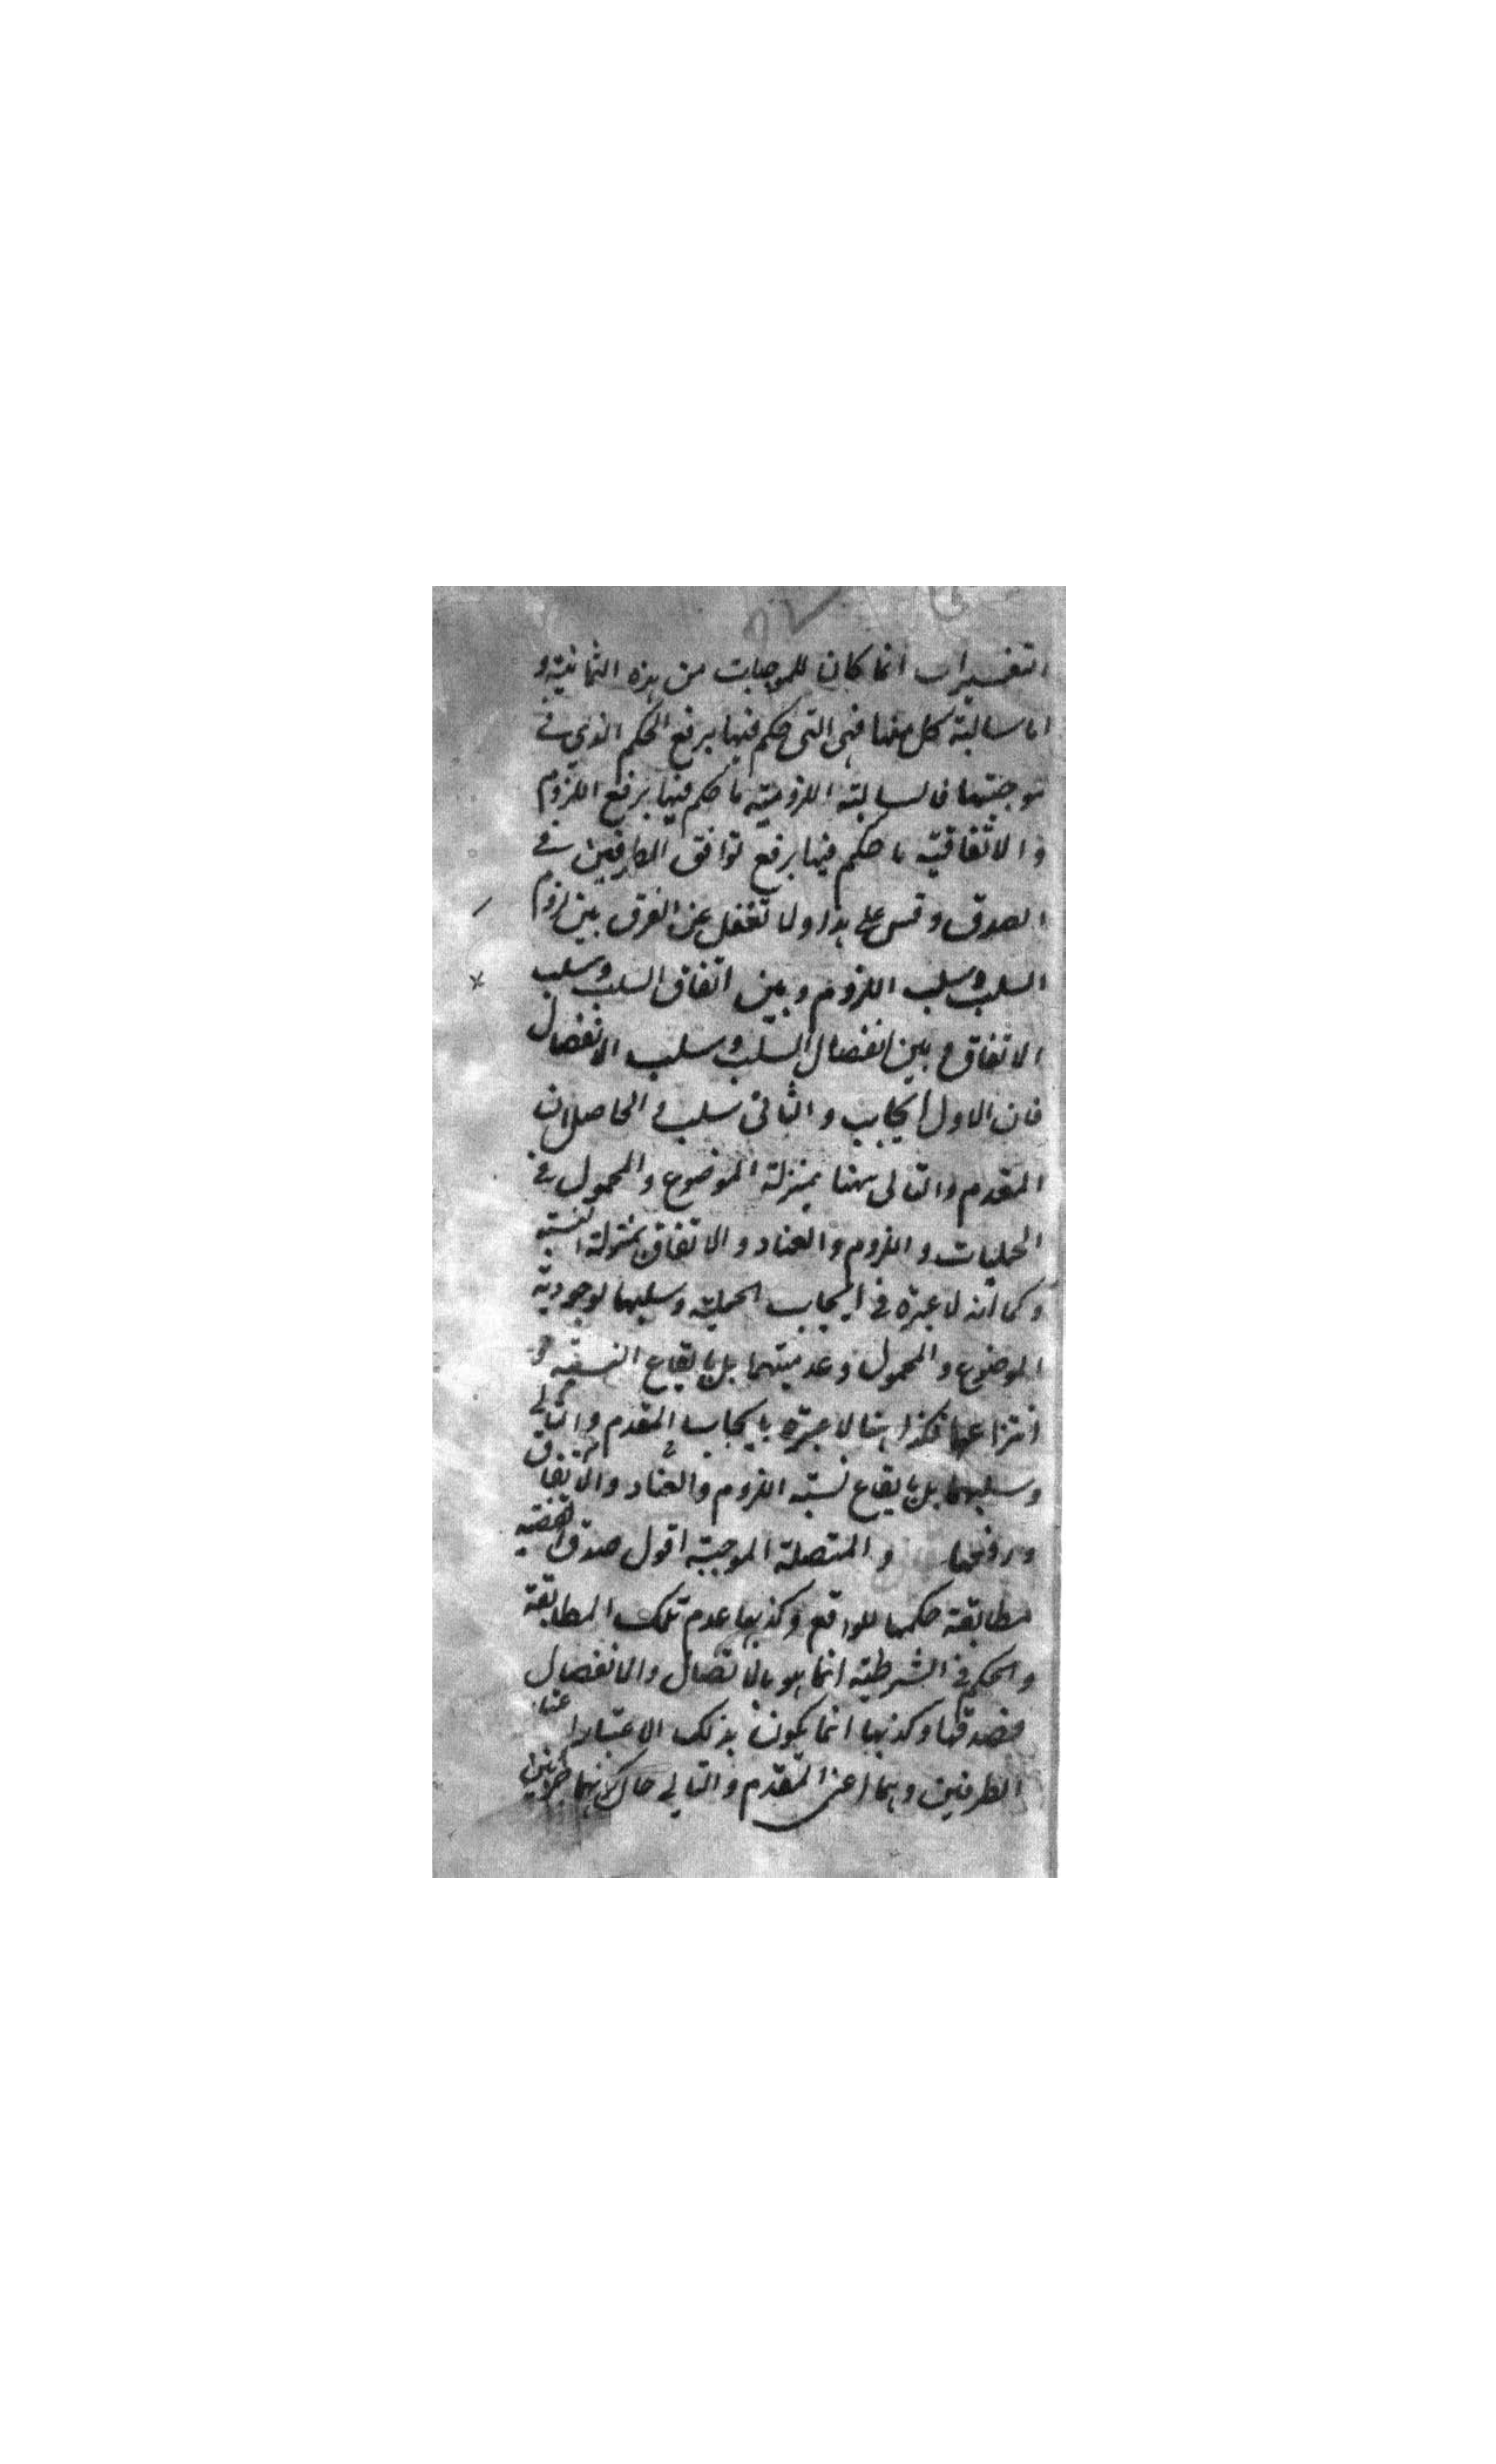 التفسيرات انما كان للموجبات من هذه الثمانية و
اما سالبة كل منها فهى التى حكم فيها برفع الحكم الذى فى
موجبتها فالسالبة اللزومية ما حكم فيها برفع اللزوم
و الاتفاقية ما حكم فيها برفع توافق الطرفين فى
الصدق و قس على هذا و لا تغفل عن الفرق بين لزوم
السلب و سلب اللزوم و بين اتفاق السلب و سلب
الاتفاق و بين انفصال السلب و سلب الانفصال
فان الاول ايجاب و الثانى سلب و الحاصل ان
المقدم و التالى ههنا بمنزلة الموضوع و المحمول فى
الحمليات و اللزوم و العناد و الاتفاق بمنزلة النسبة
و كما انه لا عبرة فى ايجاب الحملية و سلبها لوجودية
الموضوع و المحمول و عدميتهما بل بايقاع النسبة و
انتزاعها فكذا هنا لا عبرة بايجاب المقدم و التالى
و سلبهما بل بايقاع نسبة اللزوم و العناد و الاتفاق
و رفعها و المتصلة الموجبة اقول صدق القضية
مطابقة حكمها للواقع و كذبها عدم تلك المطابقة
و الحكم فى الشرطية انما هو بالاتصال و الانفصال
فصدقها و كذبها انما يكون بذلك الاعتبار
الطرفين و هما اعنى المقدم و التالى حال كونهما جزئين